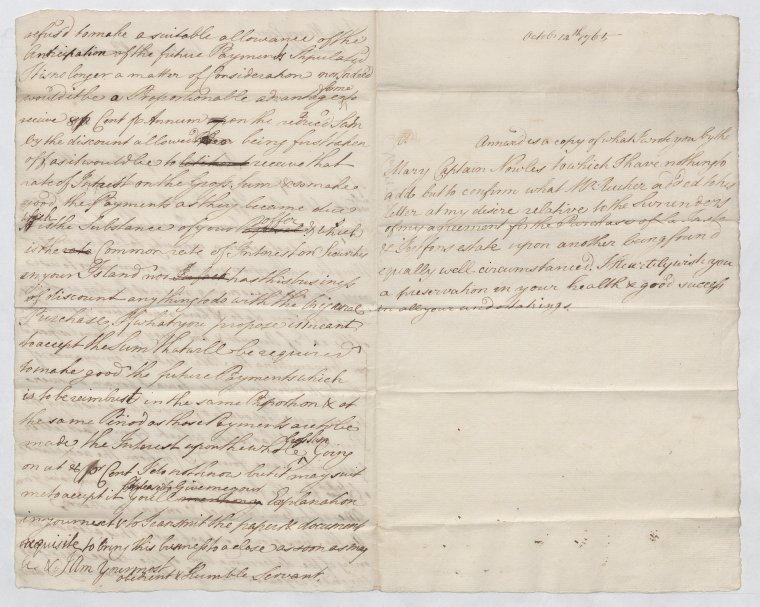 refus'd to make a suitable allowance of the
Anticipation of the future Payments Stipulated
it is no longer a matter of Consideration nor indeed
would it be a Proportionable advantage to
receive 8 p Cent p Annum upon the reduced Sum
by the discount allowed being first taken
off as it would be to receive that
rate of Interest on the Gross Sum & so make
good the Payments as they became due
which is the Substance of your &
is the rate Common rate of Interest on
in your Island nor has this business
of discount any thing to do with the Original
Purchase. If what you propose is meant
to accept the Sum that will be required
to make good the future Payments which
is to be reimburst in the same Proportion & at
the same Period as those Payments are to be
made the Interest upon the whole Going
on at 8 p Cent I do not know but it may suit
me to accept it you'l please to Give me your Explanation
in your next & to Transmit the papers & document
requisite to bring this business to a close as soon as may
be & I am Your most
obedient & Humble Servant.
Octob 12th 1765
Annex'd is a copy of what I wrote you by the
Mary Captain Nowles to which I have nothing to
add but to confirm what Mr Tucker added to his
letter at my desire relative to the Surrender
of my agreement for the Purchase of
& estate upon another being found
equally well circumstanced, I heartily wish you
a preservation in your health & good success
in all your undertakings.